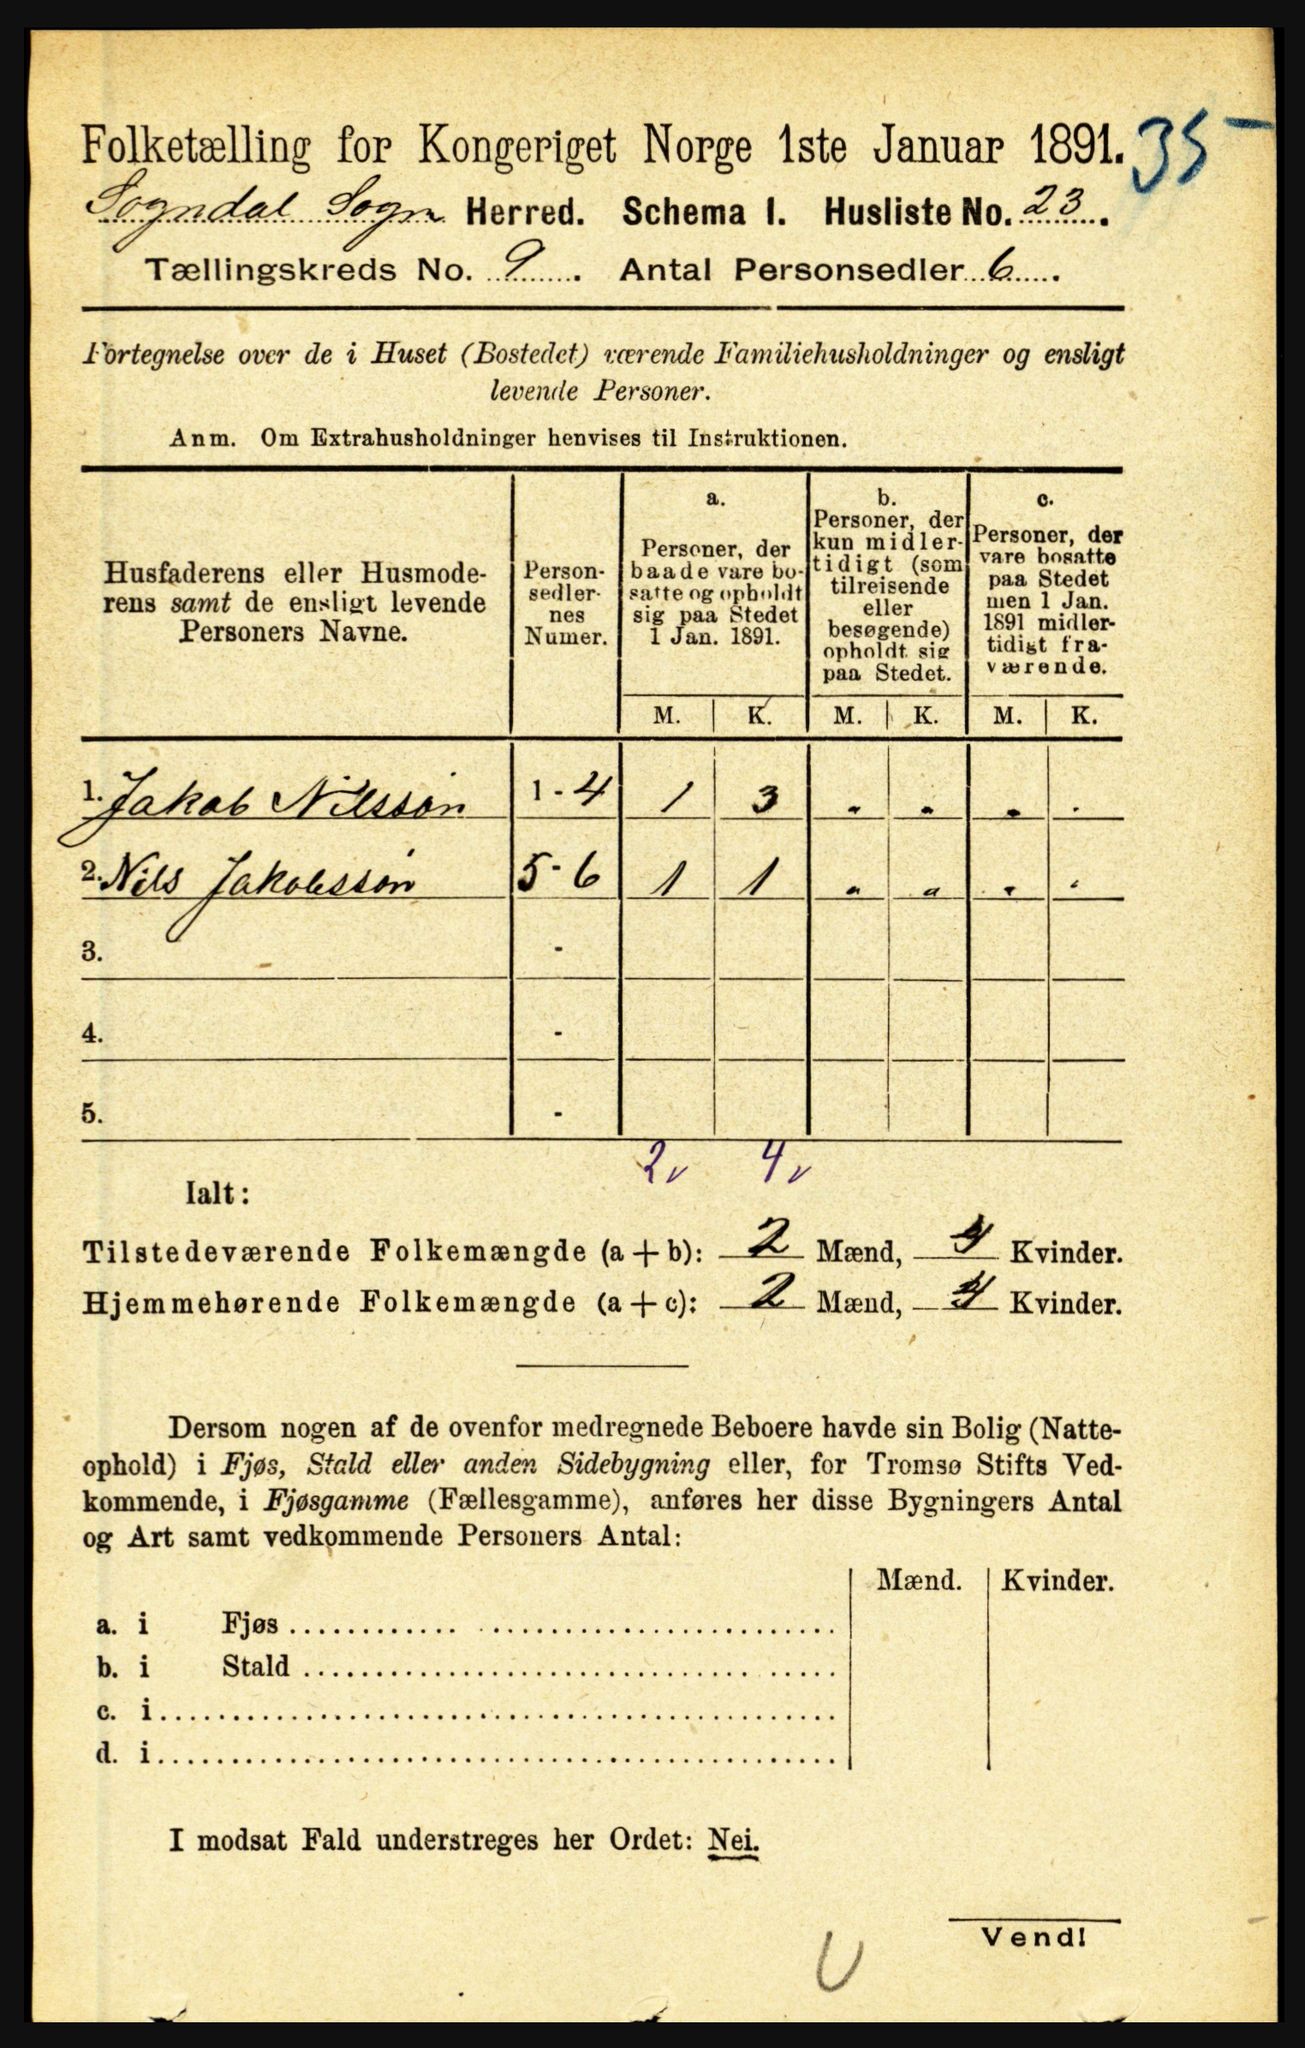 Folketælling for Kongeriget Norge 1ste Januar 1891. 35
Sogndal Sogn Herred. Schema I. Husliste No. 23.
Tællingskreds No. 9. Antal Personsedler 6.
Fortegnelse over de i Huset (Bostedet) værende Familiehusholdninger og ensligt
levende Personer.
Anm. Om Extrahusholdninger henvises til Instruktionen.
Husfaderens eller Husmode-
rens samt de ensligt levende
Personers Navne.
Person-
sedler-
nes
Numer.
a.
Personer, der
baade vare bo-
satte og opholdt
sig paa Stedet
1 Jan. 1891.
b.
Personer, der
kun midler-
tidigt (som
tilreisende
eller
besøgende)
opholdt sig
paa Stedet.
c.
Personer, der
vare bosatte
paa Stedet
men 1 Jan.
1891 midler-
tidigt fra-
værende.
M. K. M. K. M. K.
1. Jakob Nilsson 1 - 4 1 3 " " " "
2. Nils Jakobsson 5 - 6 1 1 " " " "
3. -
4. -
5. -
2 v 4 v
Ialt:
Tilstedeværende Folkemængde (a + b): 2 Mænd, 4 Kvinder.
Hjemmehørende Folkemængde (a + c): 2 Mænd, 4 Kvinder.
Dersom nogen af de ovenfor medregnede Beboere havde sin Bolig (Natte-
ophold) i Fjøs, Stald eller anden Sidebygning eller, for Tromsø Stifts Ved-
kommende, i Fjøsgamme (Fællesgamme), anføres her disse Bygningers Antal
og Art samt vedkommende Personers Antal:
Mænd. Kvinder.
a. i Fjøs
b. i Stald
c. i
d. i
I modsat Fald understreges her Ordet: Nei.
Vend!
U